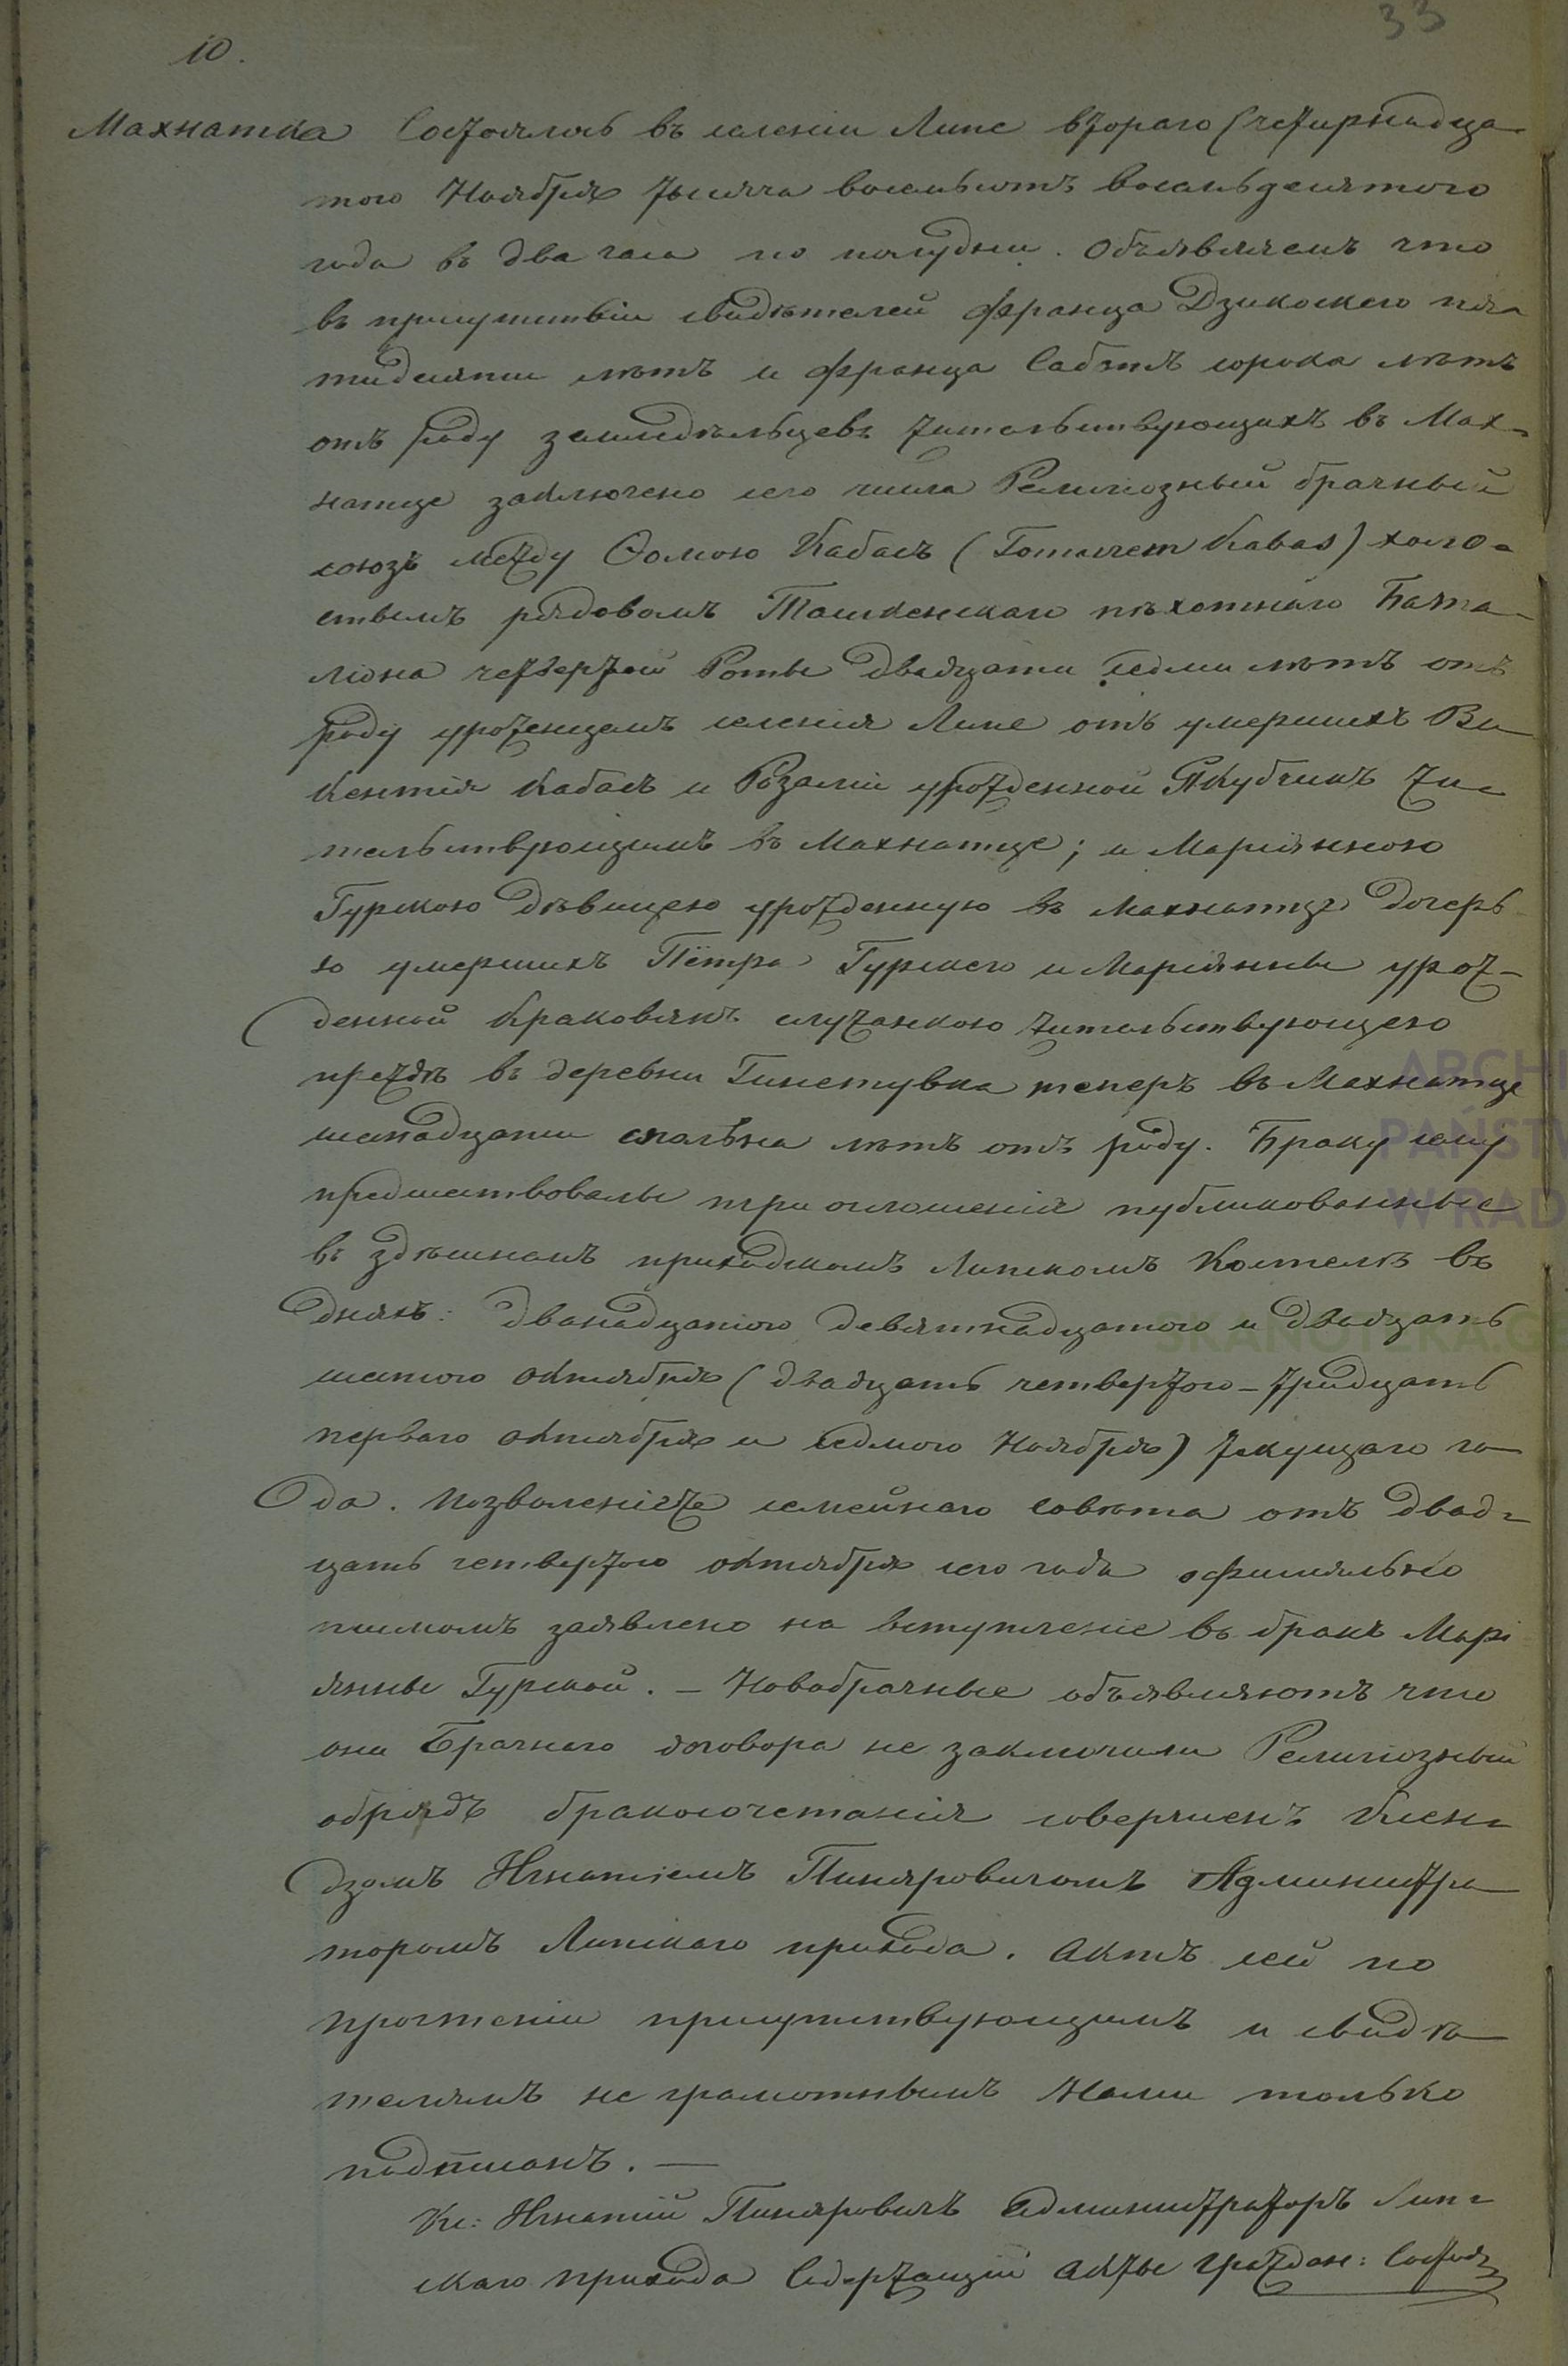 33
10.
Махнатка Состоялось въ селеніи Липе втораго (четырнадца-
того Ноября тысяча восемьсотъ восемьдесятого
года въ два часа по полудни. Объявляемъ что
въ присутствіи свидѣтелей Франца Дзикоскего пя-
тидесяти лѣтъ и Франца Сабатъ сорока лѣтъ
отъ роду земледѣльцевъ жительствующихъ въ Мах-
натце заключено сего числа Религіозный брачный
союзъ между Ѳомою Кабасъ (Tomaszem Kabas) холо-
стымъ рядовомъ Ташкенскаго пѣхотнаго Бата-
ліона четвертой Роты двадцати седми лѣтъ отъ
роду уроженцемъ селенія Липе отъ умершихъ Ви-
кентія Кабасъ и Розаліи урожденной Якубчикъ жи-
тельствующимъ въ Махнатце; и Маріянною
Гурскою дѣвицею урожденную въ Махнатце дочерь-
ю умершихъ Пётра Гурскего и Маріянны урож-
денной Краковякъ служанкою жительствующею
прежде въ деревни теперь въ Махнатце
лѣтъ отъ роду. Браку сему
предшествовалы три оглашенія публикованные
въ здѣшномъ приходскомъ Липскомъ Костелѣ въ
дняхъ: дванадцатого девятнадцатого и двадцать
шестого Октября (двадцать четвертого - тридцать
перваго Октября и седмого Ноября) текущаго го-
да. Позволеніе же семейнаго совѣта отъ двад-
цать четвертого октября сего года офиціально
письмомъ заявлено на вступленіе въ бракъ Марі
янны Гурской. - Новобрачные объявляютъ что
они Брачнаго договора не заключили Религіозный
обрядъ бракосочетанія совершенъ Ксен-
дзомъ Игнатіемъ Пиняровичомъ Администра-
торомъ Липскаго прихода. Актъ сей по
прочтеніи присутствующимъ и свидѣ-
телямъ не грамотнымъ Нами только
подписанъ. —
Кс: Игнатій Пиняровичъ Администраторъ Лип-
скаго прихода Содержащій Акты граждан: Состоя
ARCHI
PAŃSTW
W RAD
SKANOTEKA.G